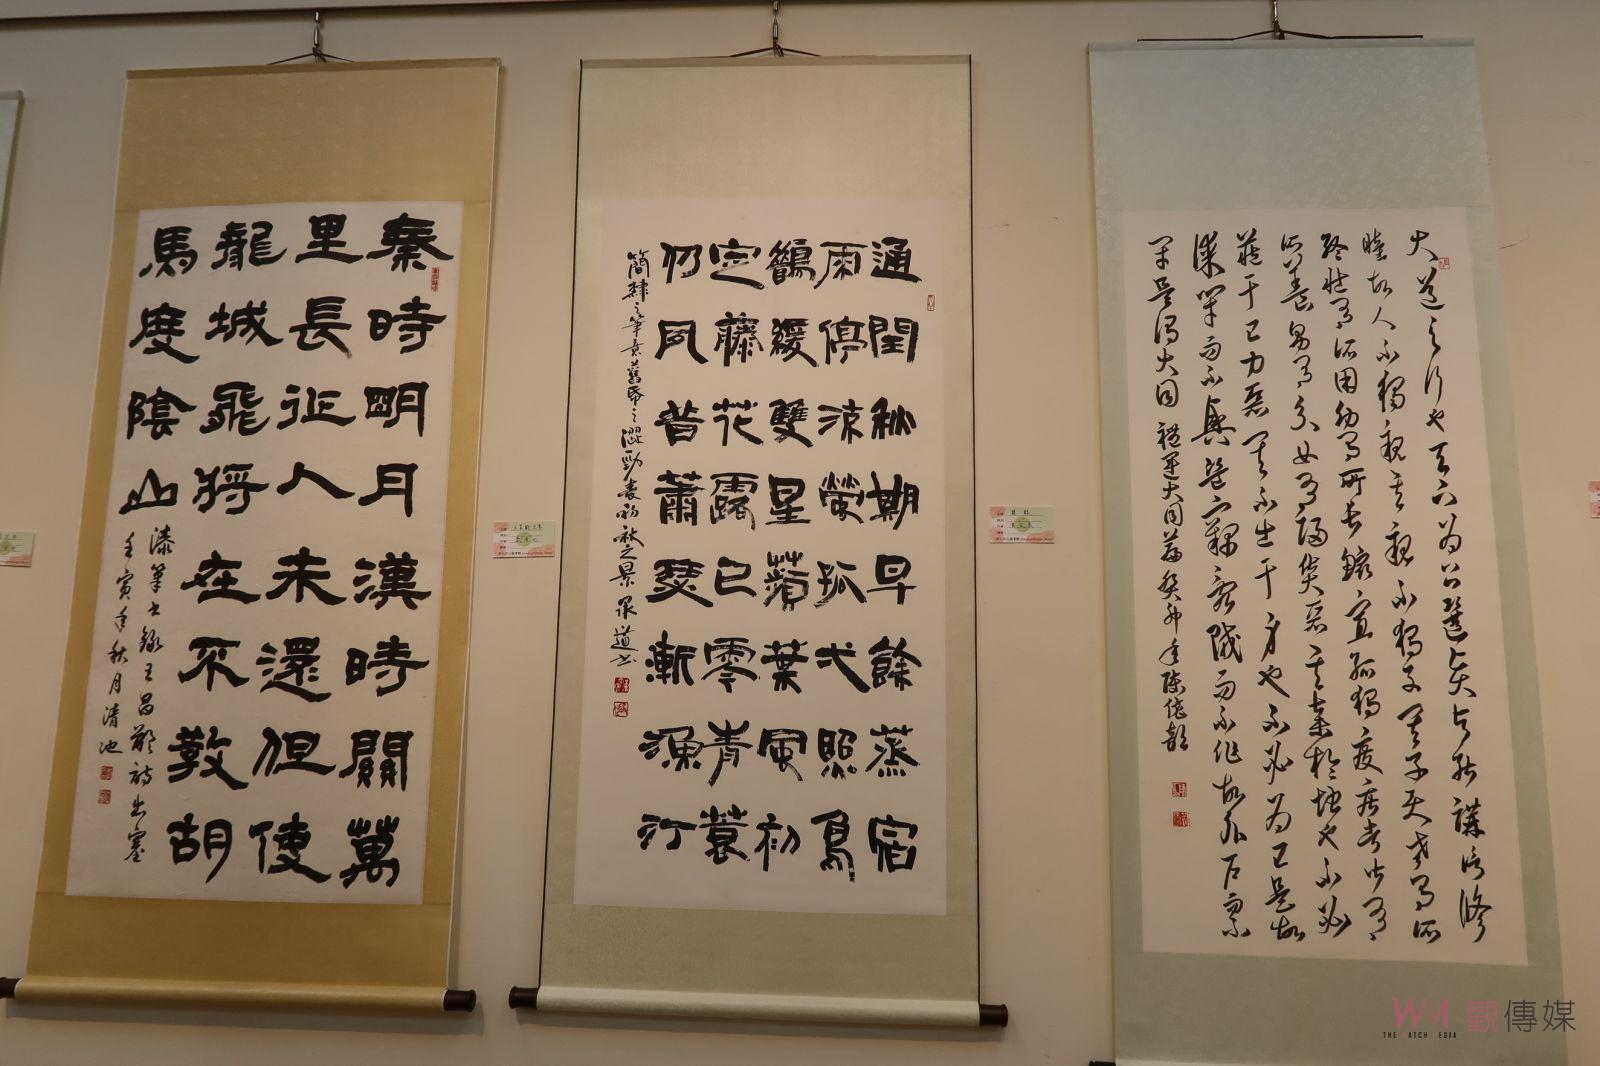 秦時明月漢時關萬
里長征人未還但使
龍城飛將在不教胡
馬度陰山
漆筆書錄王昌齡詩出塞
壬寅年秋月清池
通閏秋期早餘蒸宿
雨停涼螢孤弋照鳥
鶴緩雙星蘋葉風初
定藤花露已零青蓑
仍夙昔蕭瑟漸漁汀
簡隸之筆意舊帋之澀勁表初秋之景 道書
大道之行也天下為公選賢與能講信修
睦故人不獨親其親不獨子其子使老有所
終壯有所用幼有所長鰥寡孤獨廢疾者皆有
所養男有分女有歸貨惡其棄於地也不必
藏于己力惡其不出于身也不必為己是故
謀閉而不興盜竊亂賊而不作故外戶而不
閉是謂大同 禮運大同篇 癸卯年陳佳
觀傳媒